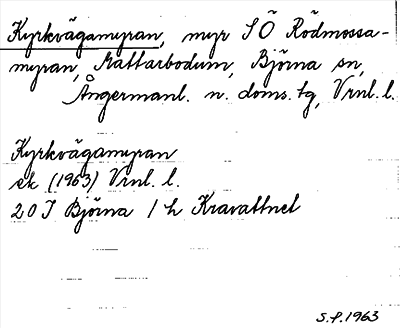 Kyrkvägamyran, myr SÖ Rödmossa-
myran, Mattarbodum, Björna sn,
Ångermanl. n. doms. tg, Vrnl. l.
Kyrkvägamyran
ek (1963) Vrnl. l.
20 I Björna 1 h Kravattnet
S.P. 1963